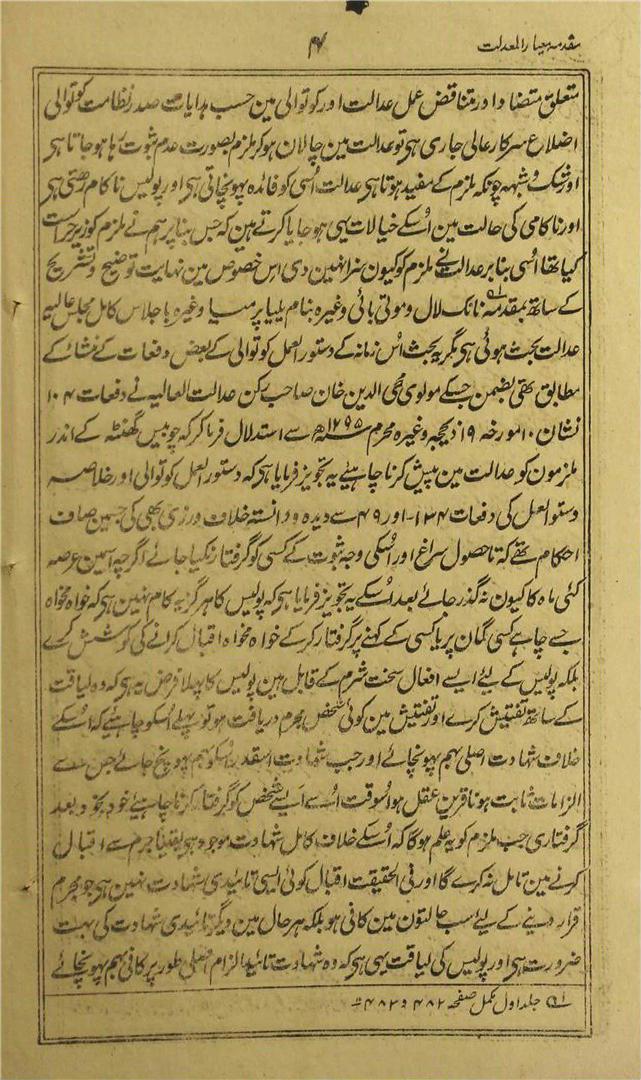 مقدمہ معیار المعدلت
۴۷
متعلق متضاد اور متناقض عمل عدالت اور کوتوالی مین حسب ہدایات صدر نظامت کوتوالی
اضلاع سرکار عالی جاری ہی تو عدالت مین چالان ہو کر ملزم بصورت عدم ثبوت رہا ہو جاتا ہی
اور شک و شبہہ چونکہ ملزم کے مفید ہوتا ہی عدالت اُسی کو فائدہ پہونچاتی ہی اور پولیس ناکام رہتی ہی
اور ناکامی کی حالت مین اُسکے خیالات یہی ہو جایا کرتے ہین کہ جس بنا پر ہم نے ملزم کو زیر حراست
کیا تھا اُسی بنا پر عدالت نے ملزم کو کیون سزا نہین دی اس خصوص مین نہایت توضیح و تشریح
کے ساتھ بمقدمہ نانک لال و موتی بائی وغیرہ بنام یلیا پرسیا وغیرہ باجلاس کامل مجلس عالیہ
عدالت بحث ہوئی ہی مگر یہ بحث اُس زمانہ کے دستور العمل کوتوالی کے بعض دفعات کے منشا کے
مطابق تھی بضمن جسکے مولوی محی الدین خان صاحب رکن عدالت العالیہ نے دفعات ۱۰۴
نشان ۱۰ مورخہ ۱۹ ذیحجہ وغیرہ محرم ۱۲۹۵ھ سے استدلال فرما کر کہ چوبیس گھنٹہ کے اندر
ملزمون کو عدالت مین پیش کرنا چاہئے یہ تجویز فرمایا ہی کہ دستور العمل کوتوالی اور خلاصہ
دستور العمل کی دفعات ۱۳۴- اور ۴۹ سے دیدہ و دانستہ خلاف ورزی بھی کی جسمین صاف
احکام تھے کہ تا حصول سراغ اور اُسکی وجہ ثبوت کے کسی کو گرفتار نکیا جائے اگرچہ اسمین عرصہ
کئی ماہ کا کیون نہ گذر جائے بعد اُسکے یہ تجویز فرمایا ہی کہ پولیس کا ہرگز یہ کام نہین ہی کہ خواہ مخواہ
جسے چاہے کسی گمان پر یا کسی کے کہنے پر گرفتار کر کے خواہ مخواہ اقبال کرانے کی کوشش کرے
بلکہ پولیس کے لئے ایسے افعال سخت شرم کے قابل ہین پولیس کا پہلا فرض یہ ہی کہ وہ لیاقت
کے ساتھ تفتیش کرے اور تفتیش مین کوئی شخص مجرم دریافت ہو تو پہلے اُسکو چاہئے کہ اُسکے
خلاف شہادت اصلی بہم پہونچائے اور جب شہادت اسقدر اُسکو بہم پہونچ جائے جس سے
الزامات ثابت ہونا قرین عقل ہو اُسوقت اُسے ایسے شخص کو گرفتار کرنا چاہئے خود بخود بعد
گرفتاری جب ملزم کو یہ علم ہوگا کہ اُسکے خلاف کامل شہادت موجود ہی یقیناً جرم سے اقبال
کرنے مین تامل نہ کرے گا اور فی الحقیقت اقبال کوئی ایسی تائیدی شہادت نہین ہی جو مجرم
قرار دینے کے لئے سب حالتون مین کافی ہو بلکہ ہر حال مین دیگر تائیدی شہادت کی بہت
ضرورت ہی اور پولیس کی لیاقت یہی ہی کہ وہ شہادت تائید الزام اصلی طور پر کافی بہم پہونچائے
جلد اول مکمل صفحہ ۴۸۲ و ۴۸۳